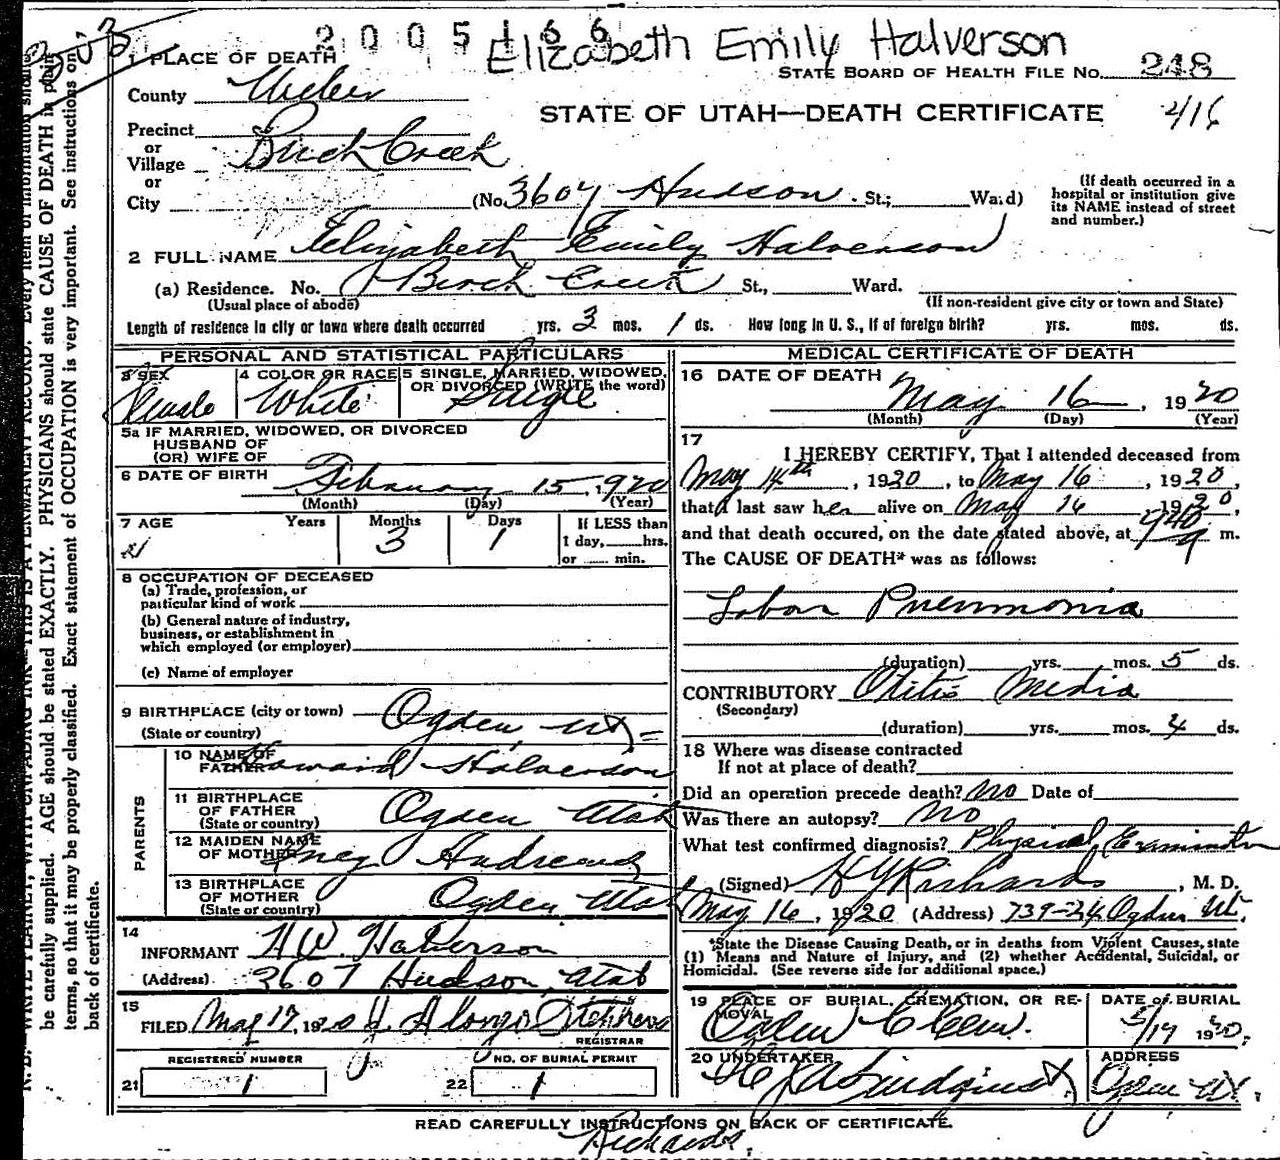 2005166
Elizabeth Emily Halverson
1 PLACE OF DEATH
STATE BOARD OF HEALTH FILE No. 248
County Weber
STATE OF UTAH—DEATH CERTIFICATE
2/16
Precinct
or
Village Birch Creek
or
City (No. 3607 Hudson St.; Ward)
(If death occurred in a hospital or institution give its NAME instead of street and number.)
2 FULL NAME Elizabeth Emily Halverson
(a) Residence. No. Birch Creek St., Ward.
(Usual place of abode) (If non-resident give city or town and State)
Length of residence in city or town where death occurred yrs. 3 mos. 1 ds. How long in U. S., if of foreign birth? yrs. mos. ds.
PERSONAL AND STATISTICAL PARTICULARS
3 SEX Female
4 COLOR OR RACE White
5 SINGLE, MARRIED, WIDOWED, OR DIVORCED (WRITE the word) Single
5a IF MARRIED, WIDOWED, OR DIVORCED
HUSBAND OF
(OR) WIFE OF
6 DATE OF BIRTH February 15, 1920
(Month) (Day) (Year)
7 AGE Years Months 3 Days 1
If LESS than
1 day, hrs.
or min.
8 OCCUPATION OF DECEASED
(a) Trade, profession, or
particular kind of work
(b) General nature of industry,
business, or establishment in
which employed (or employer)
(c) Name of employer
9 BIRTHPLACE (city or town) Ogden, Ut
(State or country)
PARENTS
10 NAME OF FATHER Howard Halverson
11 BIRTHPLACE OF FATHER Ogden Utah
(State or country)
12 MAIDEN NAME OF MOTHER Andrews
13 BIRTHPLACE OF MOTHER Ogden Utah
(State or country)
14
INFORMANT H W. Halverson
(Address) 3607 Hudson, Utah
15
FILED May 17, 1920 J. Alonzo Stephens
REGISTRAR
REGISTERED NUMBER NO. OF BURIAL PERMIT
21 1 22 1
MEDICAL CERTIFICATE OF DEATH
16 DATE OF DEATH
May 16, 1920
(Month) (Day) (Year)
17
I HEREBY CERTIFY, That I attended deceased from
May 14th, 1920, to May 16, 1920,
that I last saw her alive on May 16 1920,
and that death occured, on the date stated above, at 940 a m.
The CAUSE OF DEATH* was as follows:
Lobar Pneumonia
(duration) yrs. mos. 5 ds.
CONTRIBUTORY Otitis Media
(Secondary)
(duration) yrs. mos. 4 ds.
18 Where was disease contracted
If not at place of death?
Did an operation precede death? No Date of
Was there an autopsy? No
What test confirmed diagnosis? Physical Examination
(Signed) H Y Richards, M. D.
May 16, 1920 (Address) 739-24 Ogden Ut.
*State the Disease Causing Death, or in deaths from Violent Causes, state
(1) Means and Nature of Injury, and (2) whether Accidental, Suicidal, or
Homicidal. (See reverse side for additional space.)
19 PLACE OF BURIAL, CREMATION, OR REMOVAL
Ogden C Cem.
DATE of BURIAL
5/17 1920,
20 UNDERTAKER
ADDRESS
Ogden Ut.
READ CAREFULLY INSTRUCTIONS ON BACK OF CERTIFICATE.
Richards.
N. B.—WRITE PLAINLY, WITH UNFADING INK—THIS IS A PERMANENT RECORD. Every item of information should
be carefully supplied. AGE should be stated EXACTLY. PHYSICIANS should state CAUSE OF DEATH in plain
terms, so that it may be properly classified. Exact statement of OCCUPATION is very important. See instructions on
back of certificate.